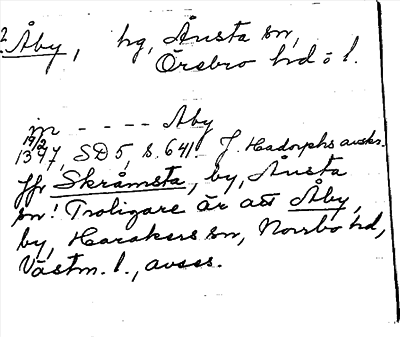 ? Åby, hg, Ånsta sn,
Örebro hd o l.
in - - - - Aby
19/2
1347, SD 5, s. 641. J. Hadorphs avskr.
Jfr Skråmsta, by, Ånsta
sn! Troligare är att Åby,
by, Harakers sn, Norrbo hd,
Västm. l., avses.